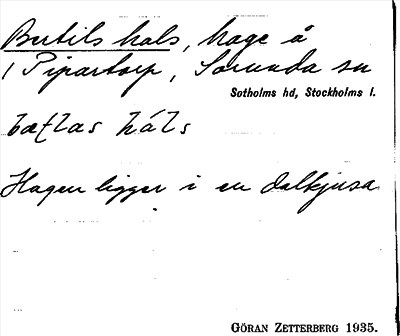 Bertils hals, hage å
1 Pipartorp, Sorunda sn
Sotholms hd, Stockholms l.
bæʈlas háls
Hagen ligger i en dalkjusa
GÖRAN ZETTERBERG 1935.